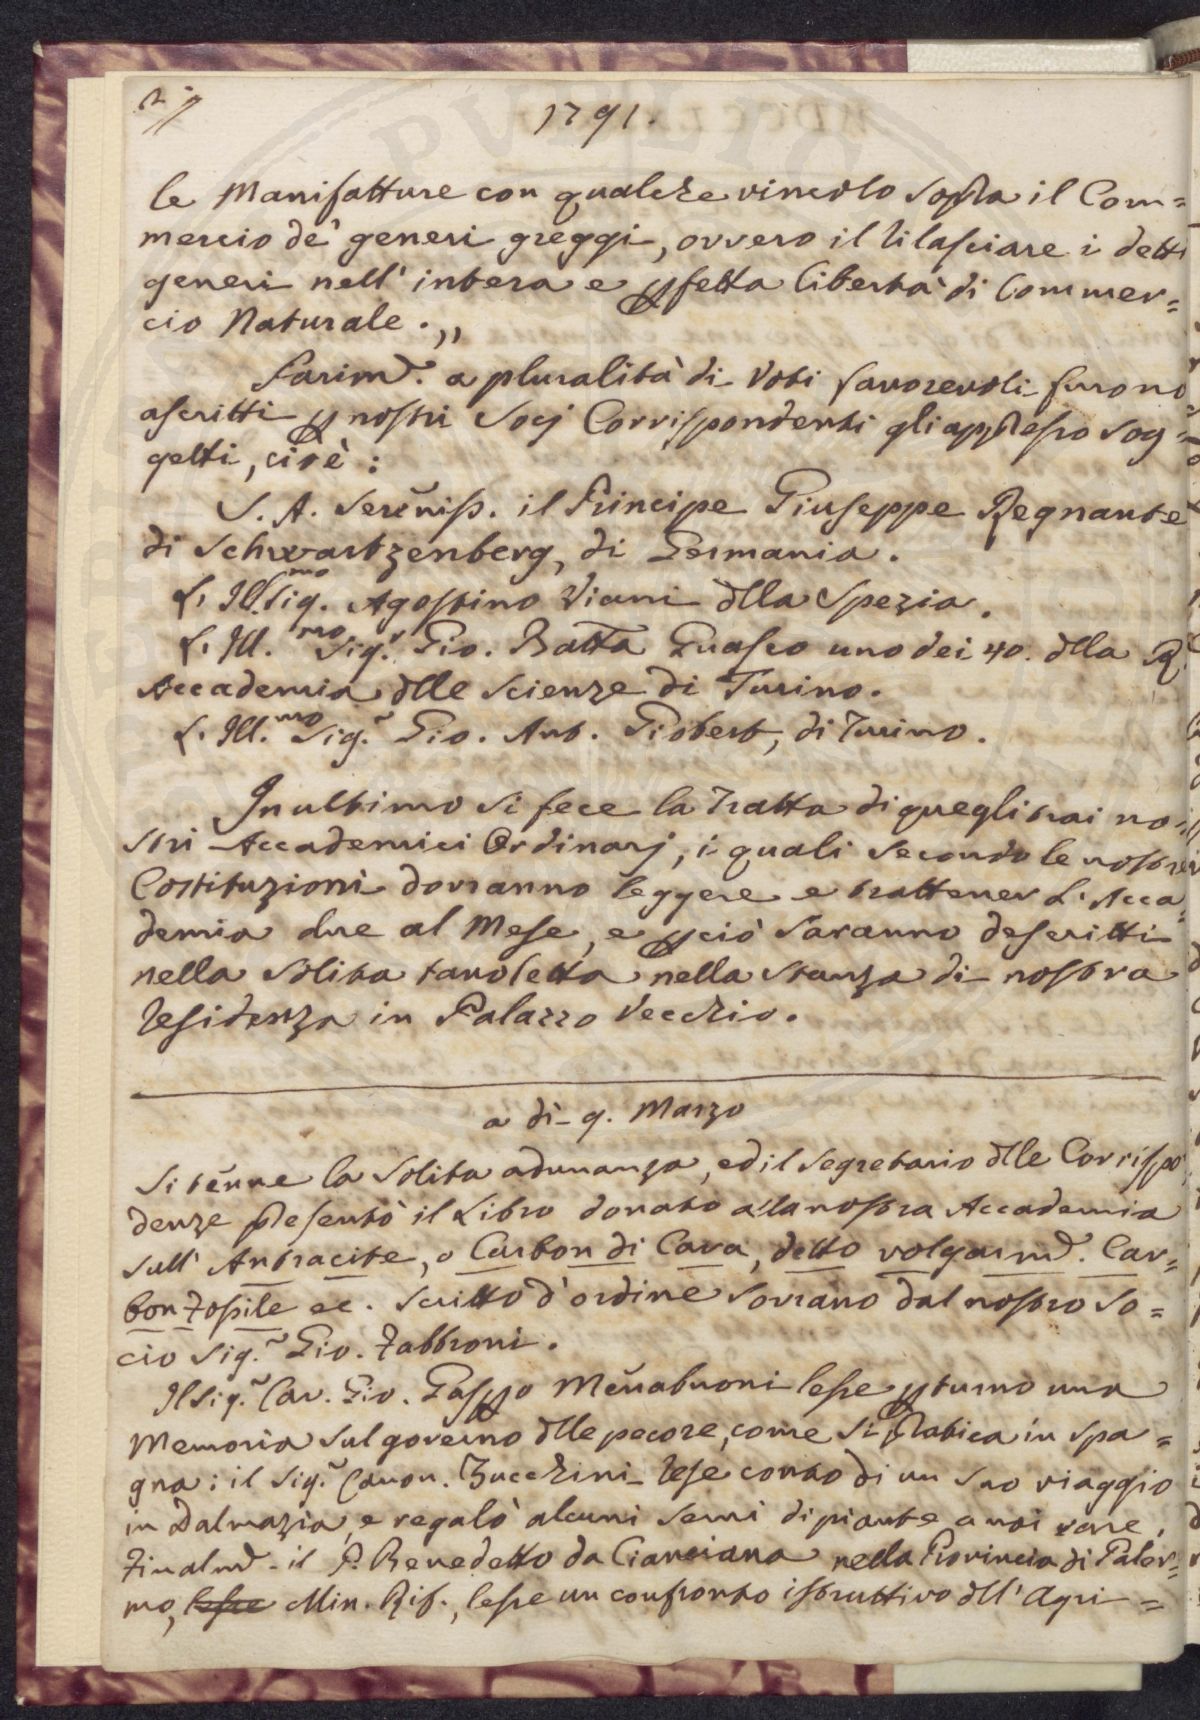 2
1791.
le Manifatture con qualche vincolo sopra il Com=
mercio de' generi greggi, ovvero il rilasciare i detti
generi nell' intera e pfetta libertà di Commer=
cio Naturale.„
Parimd. a pluralità di Voti favorevoli furono
ascritti p nostri Socj Corrispondenti gli appresso Sog=
getti, cioè:
S. A. Sereniss. il Principe Giuseppe Regnante
di Schwartzenberg, di Germania.
L' Ill.mo Sig. Agostino Viani dlla Spezia.
L' Ill.mo Sig.r Gio. Batta Guasco uno dei 40. dlla R.
Accademia dlle Scienze di Turino.
L' Ill.mo Sig.r Gio. Ant. Giobert, di Turino.
In ultimo si fece la Tratta di quegli trai no=
stri Accademici Ordinarj, i quali secondo le nostre
Costituzioni dovranno leggere e trattener L' Acca=
demia due al Mese, e p ciò saranno descritti
nella solita tavoletta nella stanza di nostra
residenza in Palazzo Vecchio.
a dì 9. Marzo
Si tenne la solita adunanza, ed il Segretario dlle Corrispo
denze presentò il Libro donato alla nostra Accademia
sull' Antracite, o Carbon di Cava, detto volgarmd. Car=
bon Fossile ec. scritto d' ordine sovrano dal nostro So=
cio Sig.r Gio. Fabbroni.
Il Sig.r Cav. Gio. Gasppo Menabuoni lesse p turno una
Memoria sul governo dlle pecore, come si pratica in Spa=
gna: il Sig.r Canon. Zucchini rese conto di un suo viaggio
in Dalmazia, e regalò alcuni semi di piante a noi rare.
Finalmd. il P. Benedetto da Cianciana nella Provincia di Paler=
mo, lesse Min. Rif., lesse un confronto istruttivo dll' Agri=